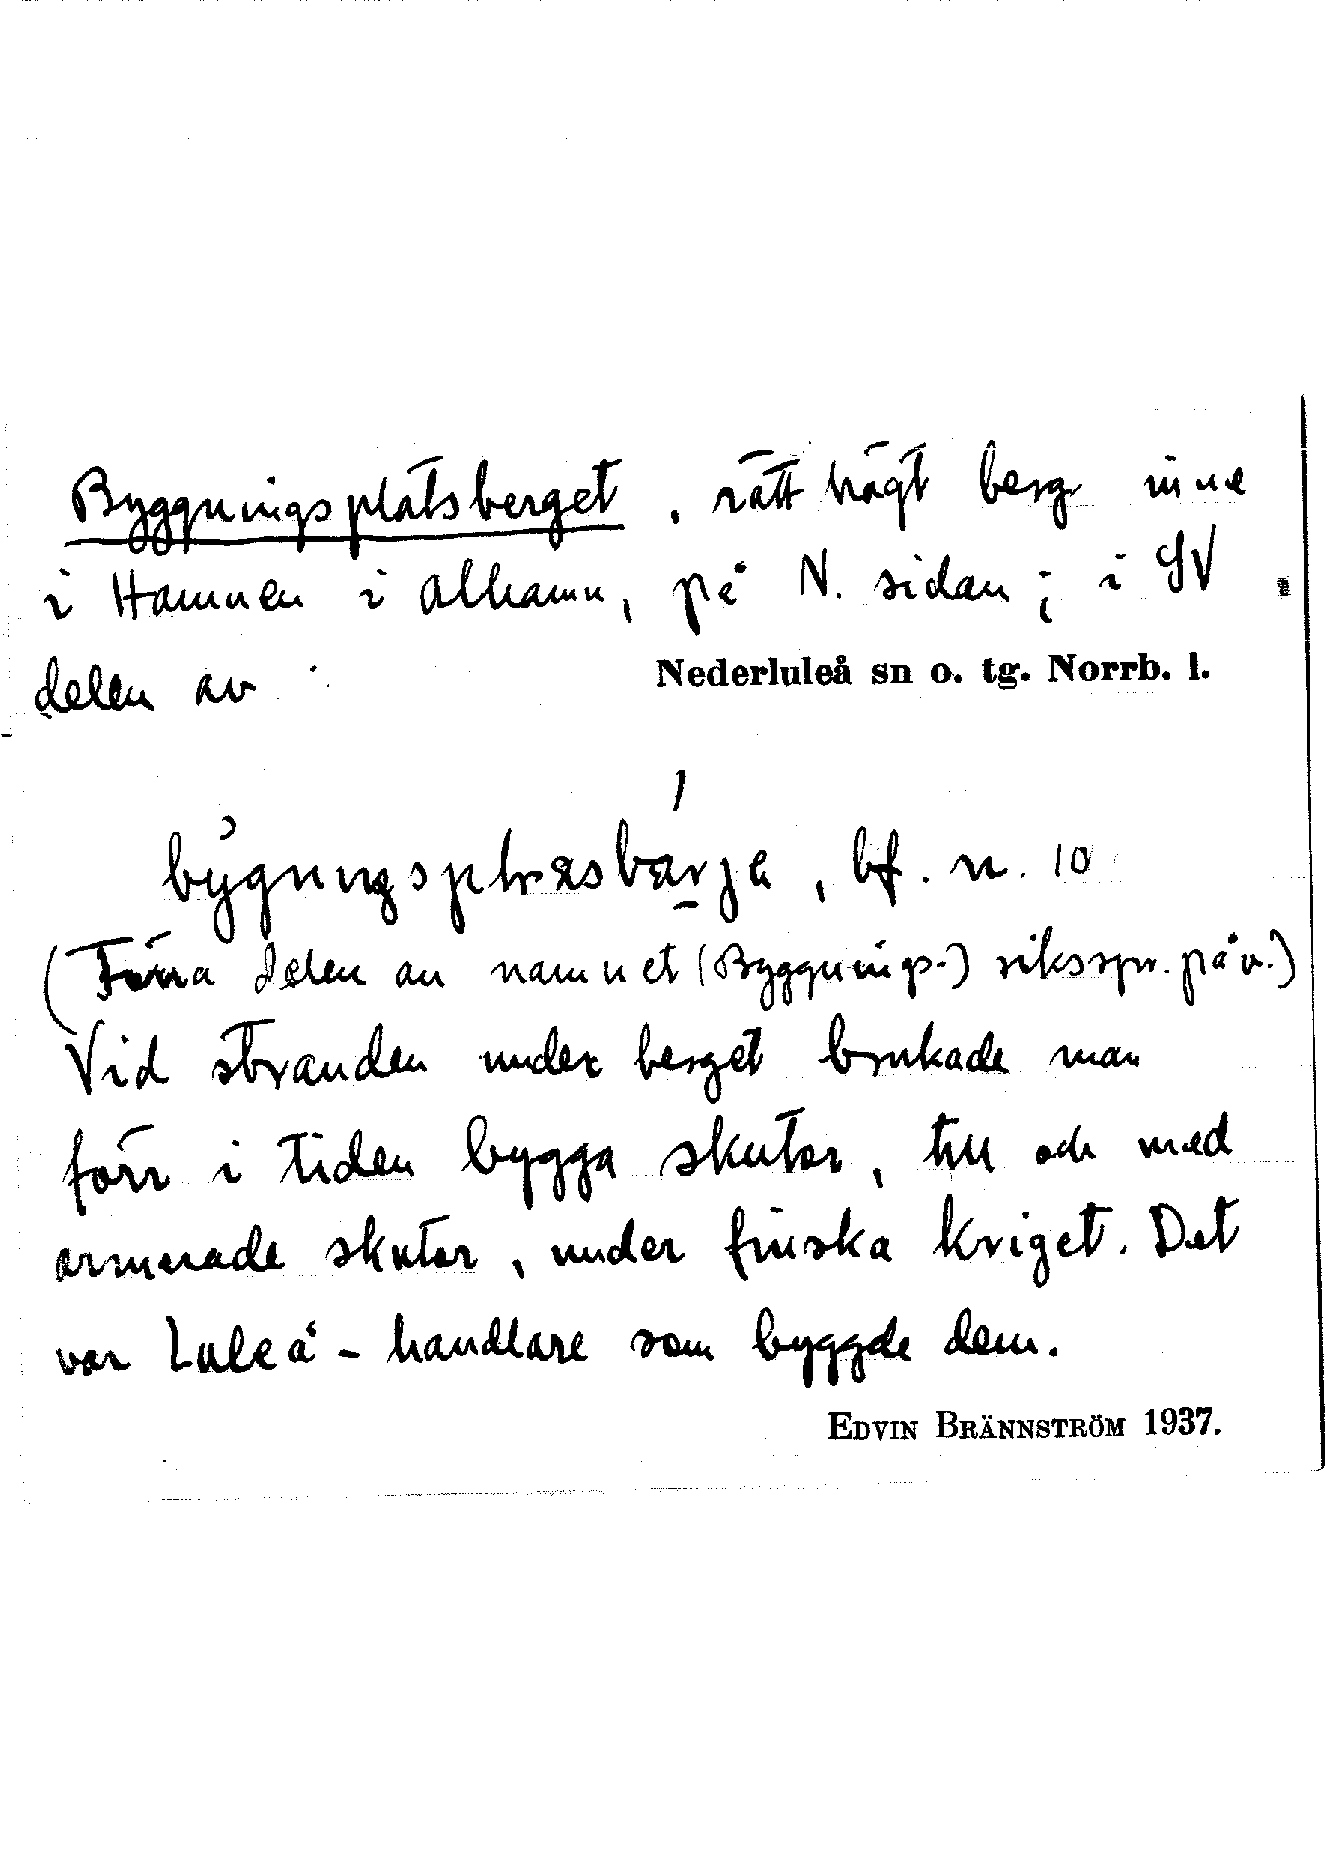 Byggningsplatsberget, rätt högt berg inne
i Hamnen i Alhamn, på N. sidan; i SV
delen av Nederluleå sn o. tg. Norrb. l.
bygningsplasbärja, bf. n. 10
(Förra delen av namnet (Byggnings-) riksspr. påv.)
Vid stranden under berget brukade man
förr i tiden bygga skutor, till och med
armerade skutor, under finska kriget. Det
var Luleå-handlare som byggde dem.
EDVIN BRÄNNSTRÖM 1937.